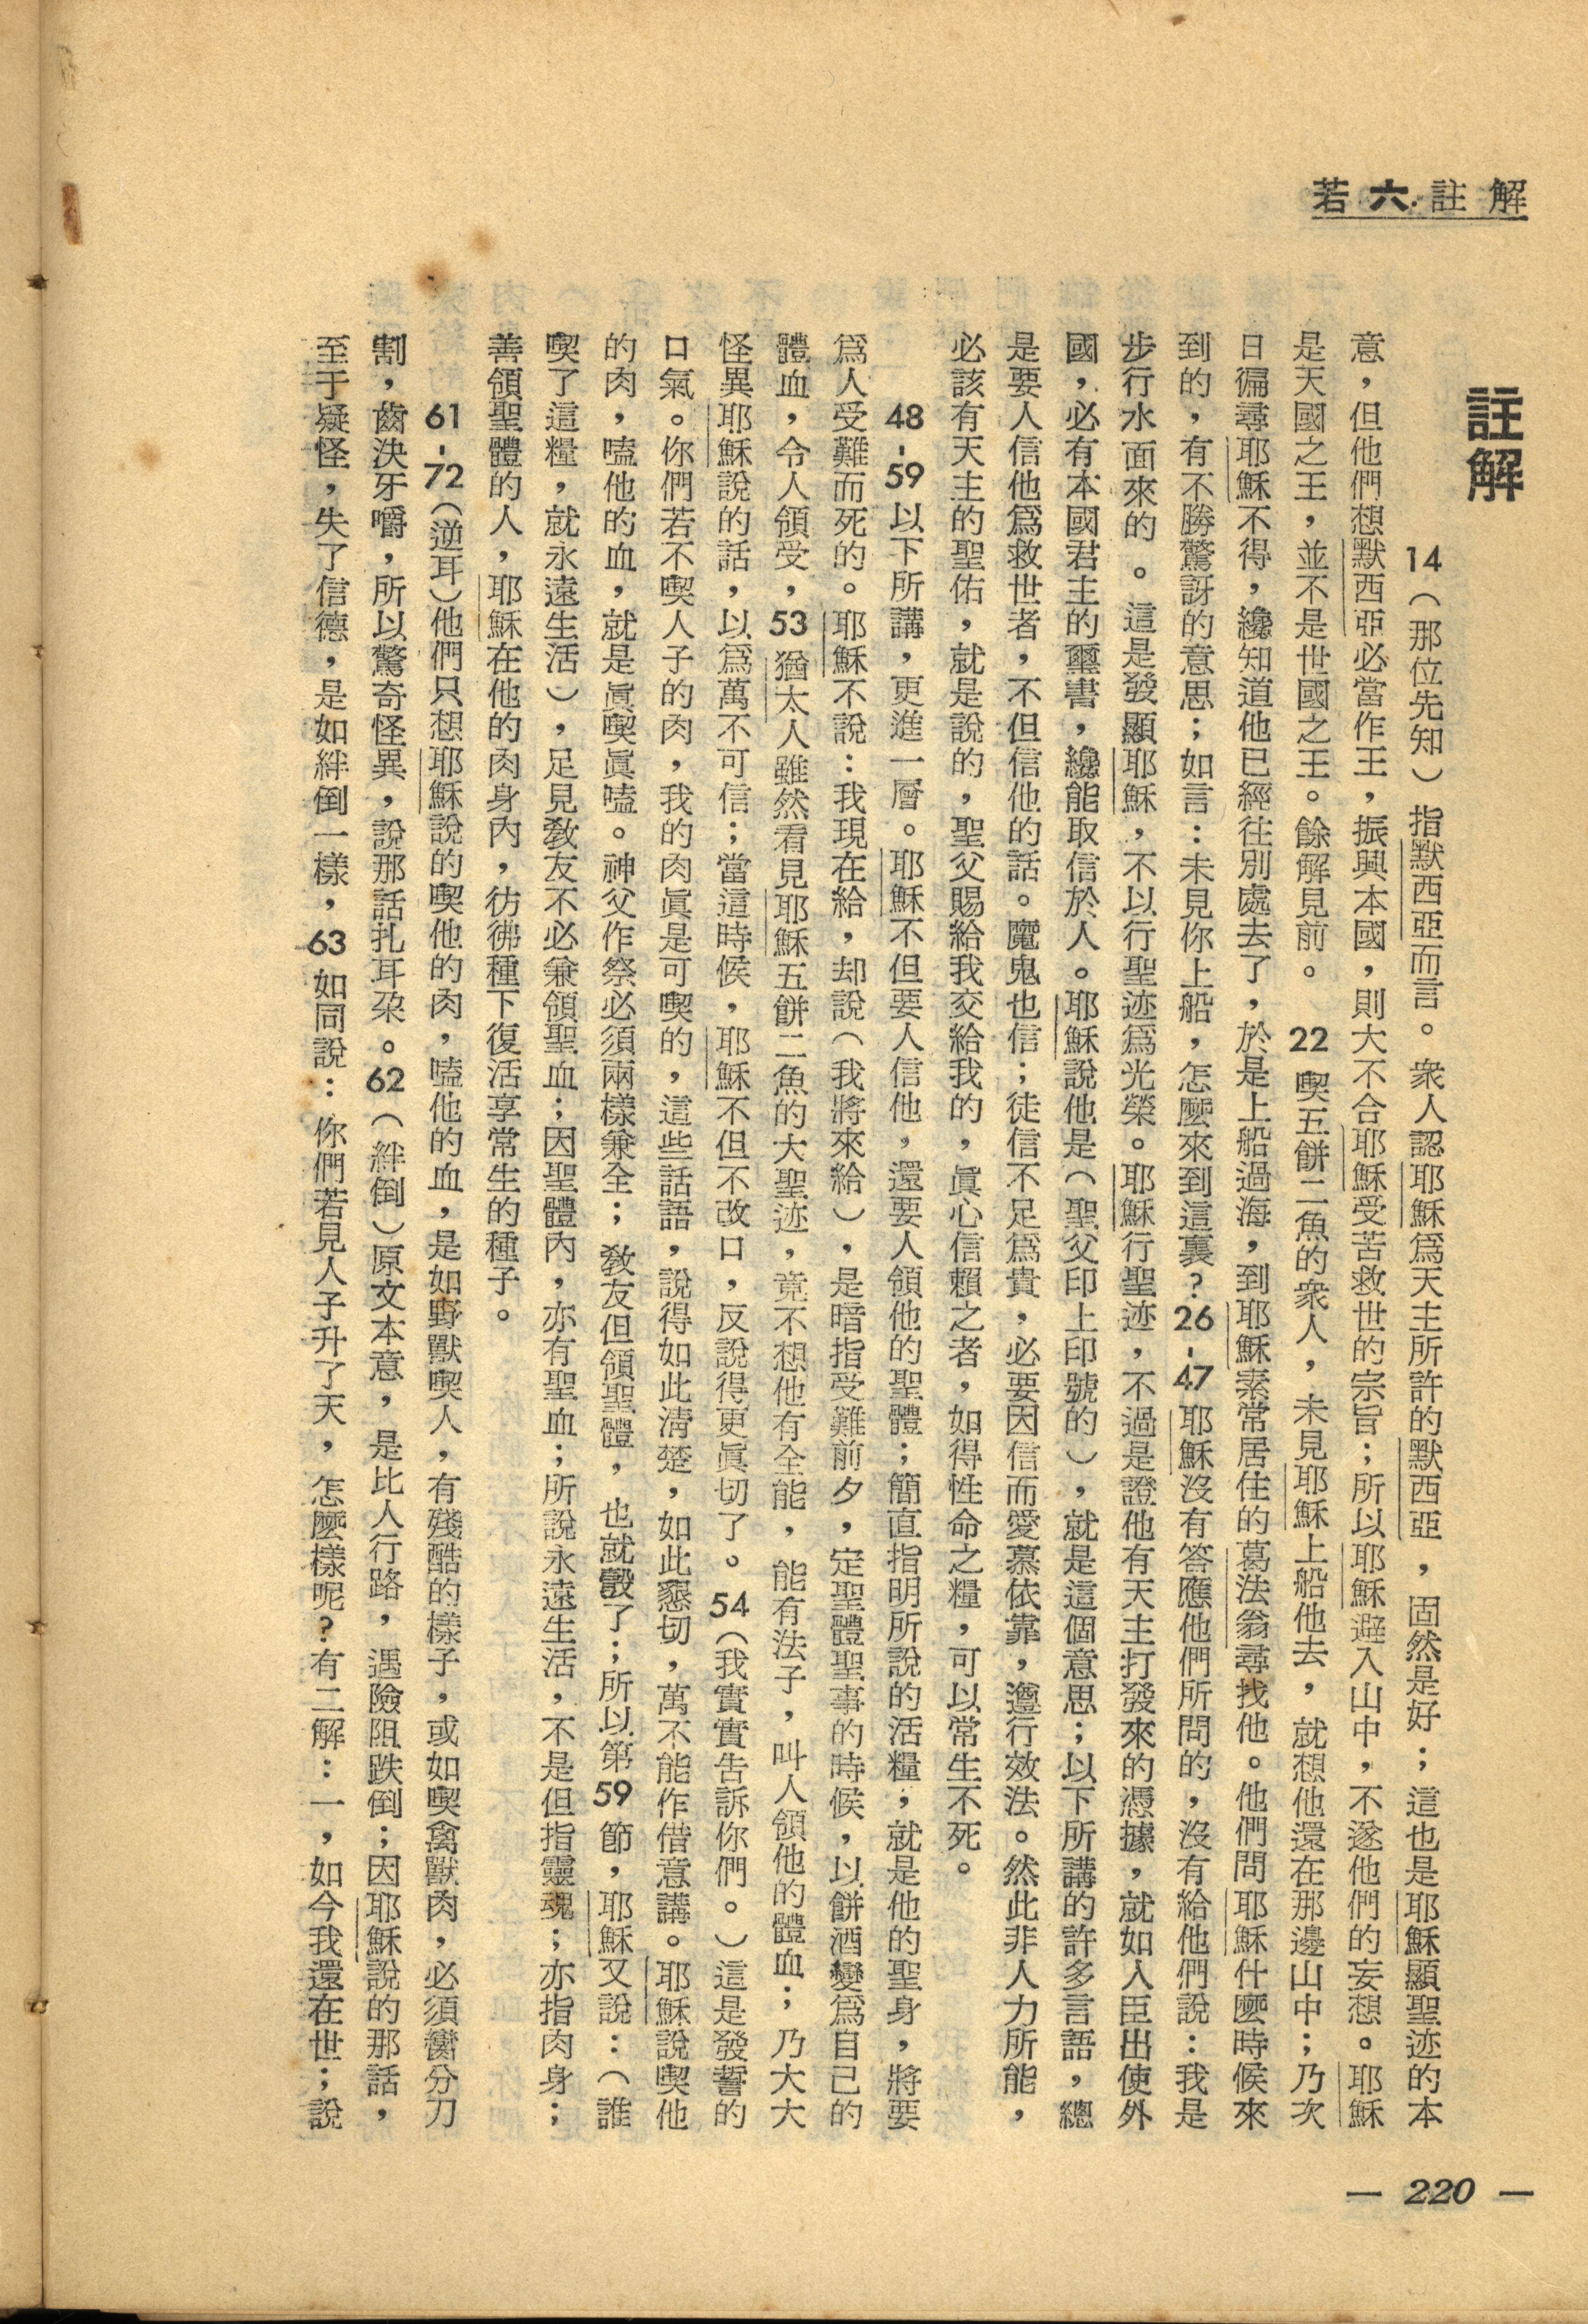 若六·註解
註解
14（那位先知）指默西亞而言。衆人認耶穌爲天主所許的默西亞，固然是好；這也是耶穌顯聖迹的本
意，但他們想默西亞必當作王，振興本國，則大不合耶穌受苦救世的宗旨；所以耶穌避入山中，不遂他們的妄想。耶穌
是天國之王，並不是世國之王。餘解見前。 22 喫五餅二魚的衆人，未見耶穌上船他去，就想他還在那邊山中；乃次
日徧尋耶穌不得，纔知道他已經往別處去了，於是上船過海，到耶穌素常居住的葛法翁尋找他。他們問耶穌什麽時候來
到的，有不勝驚訝的意思；如言：未見你上船，怎麽來到這裏？26-47 耶穌沒有答應他們所問的，沒有給他們說：我是
步行水面來的。這是發顯耶穌，不以行聖迹爲光榮。耶穌行聖迹，不過是證他有天主打發來的憑據，就如人臣出使外
國，必有本國君主的璽書，纔能取信於人。耶穌說他是（聖父印上印號的），就是這個意思；以下所講的許多言語，總
是要人信他爲救世者，不但信他的話。魔鬼也信；徒信不足爲貴，必要因信而愛慕依靠，遵行效法。然此非人力所能，
必該有天主的聖佑，就是說的，聖父賜給我交給我的，眞心信賴之者，如得性命之糧，可以常生不死。
48-59 以下所講，更進一層。耶穌不但要人信他，還要人領他的聖體；簡直指明所說的活糧，就是他的聖身，將要
爲人受難而死的。耶穌不說：我現在給，却說（我將來給），是暗指受難前夕，定聖體聖事的時候，以餅酒變爲自己的
體血，令人領受，53 猶太人雖然看見耶穌五餅二魚的大聖迹，竟不想他有全能，能有法子，叫人領他的體血；乃大大
怪異耶穌說的話，以爲萬不可信；當這時候，耶穌不但不改口，反說得更眞切了。54（我實實告訴你們。）這是發誓的
口氣。你們若不喫人子的肉，我的肉眞是可喫的，這些話語，說得如此清楚，如此懇切，萬不能作借意講。耶穌說喫他
的肉，嗑他的血，就是眞喫眞嗑。神父作祭必須兩樣兼全；敎友但領聖體，也就彀了；所以第59節，耶穌又說：（誰
喫了這糧，就永遠生活），足見敎友不必兼領聖血；因聖體內，亦有聖血；所說永遠生活，不是但指靈魂；亦指肉身；
善領聖體的人，耶穌在他的肉身內，彷彿種下復活享常生的種子。
61-72（逆耳）他們只想耶穌說的喫他的肉，嗑他的血，是如野獸喫人，有殘酷的樣子，或如喫禽獸肉，必須臠分刀
割，齒決牙嚼，所以驚奇怪異，說那話扎耳朶。62（絆倒）原文本意，是比人行路，遇險阻跌倒；因耶穌說的那話，
至于疑怪，失了信德，是如絆倒一樣，63 如同說：你們若見人子升了天，怎麽樣呢？有二解：一，如今我還在世；說
— 220 —